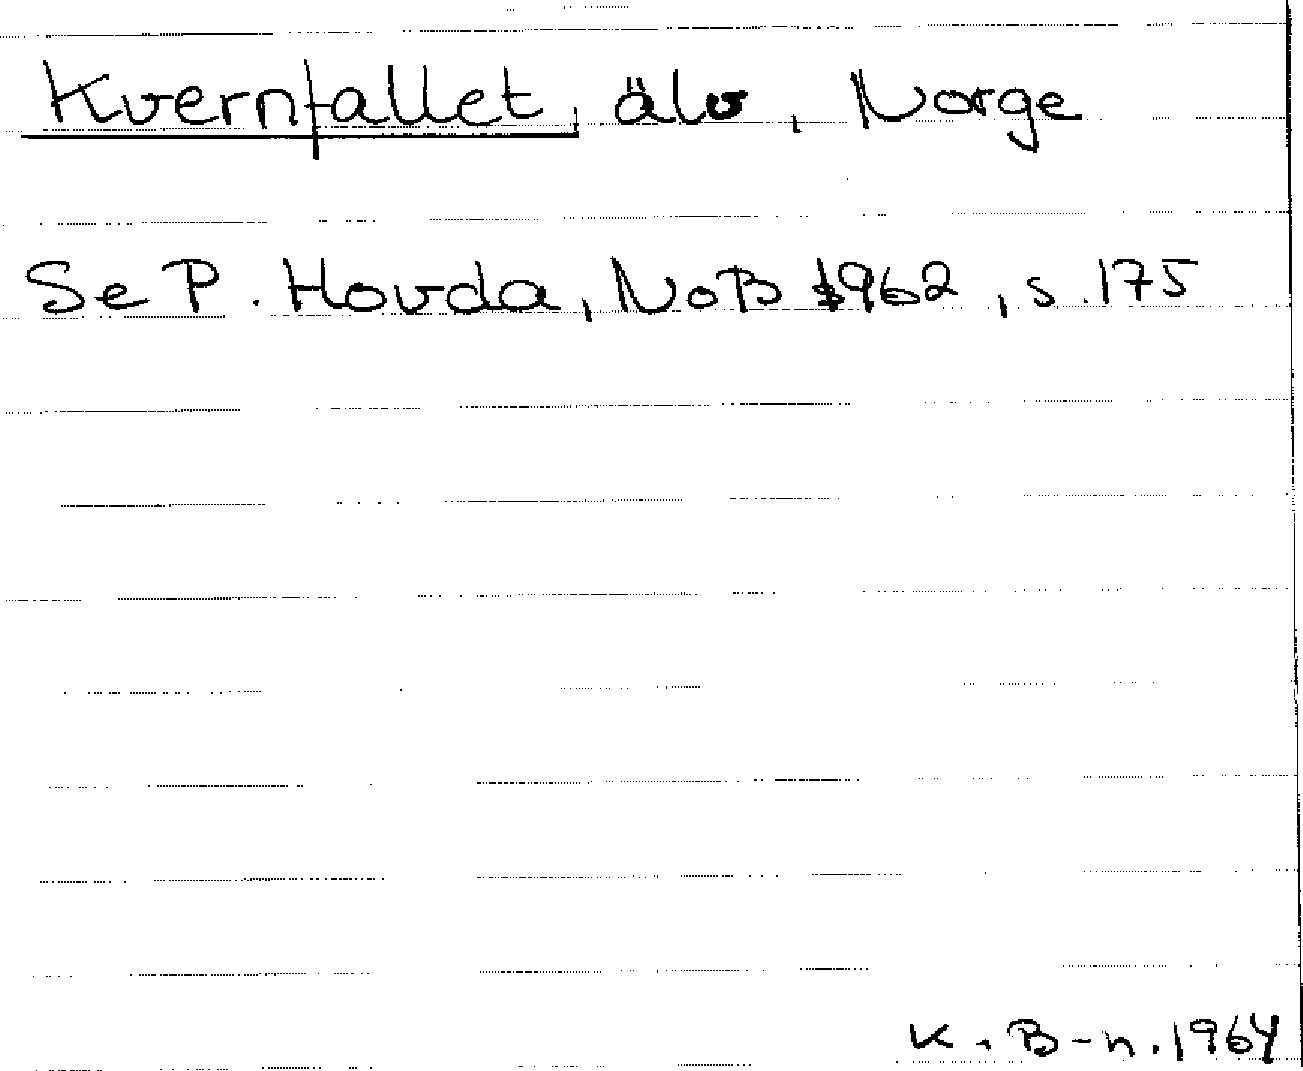 Kvernfallet, älv, Norge
Se P. Hovda, NoB 1962, s. 175
K. B-n. 1964